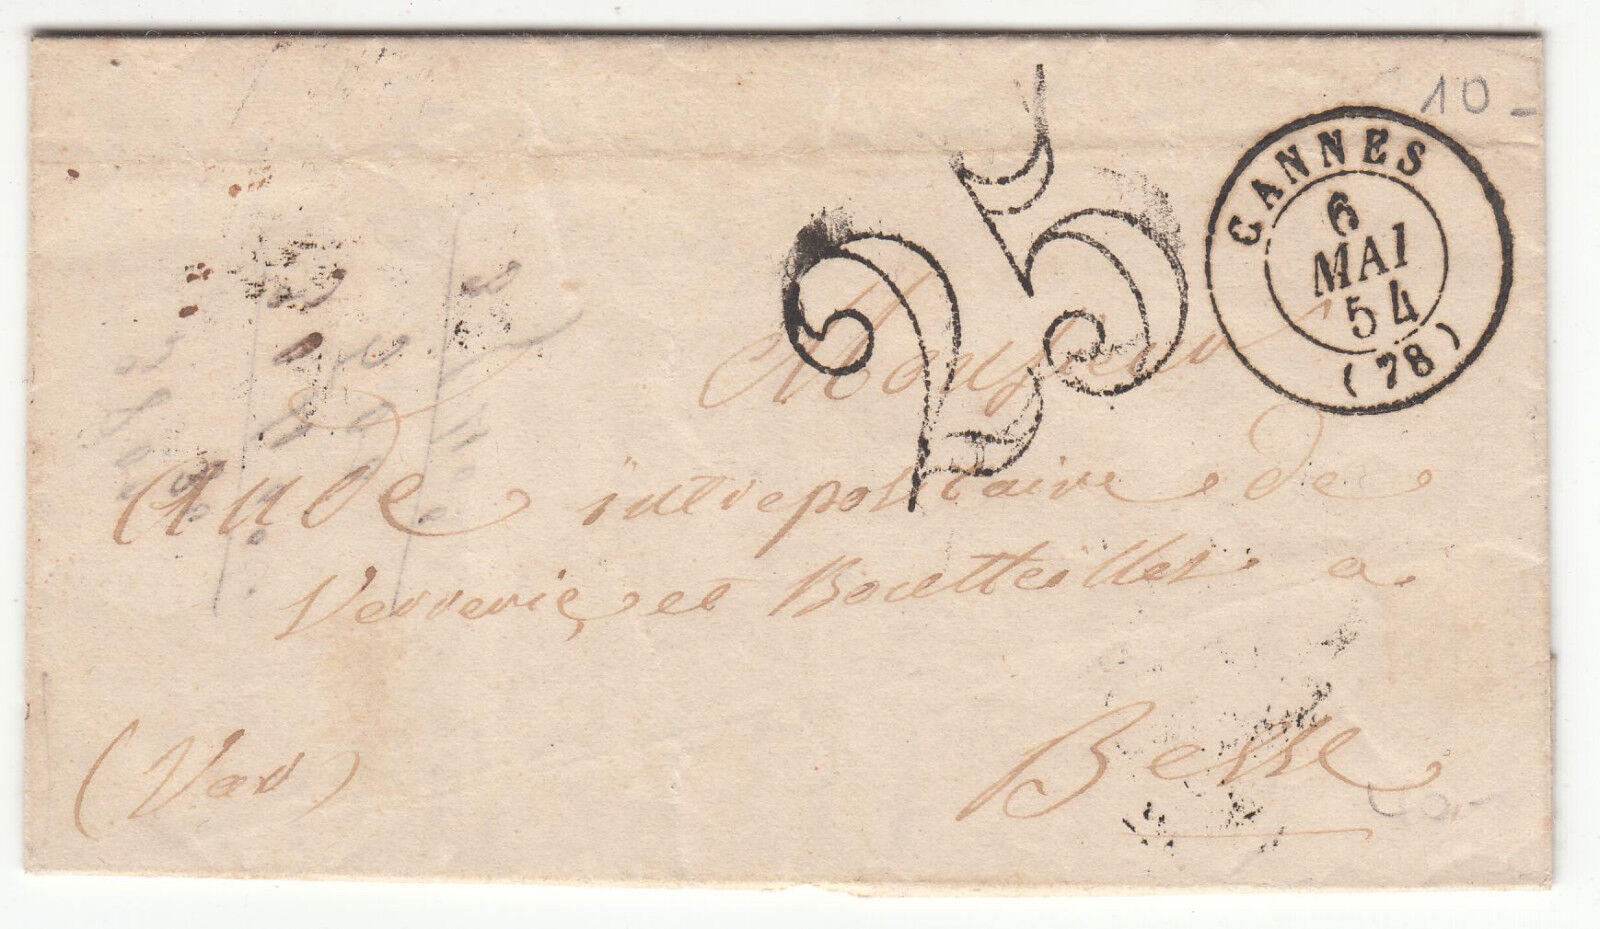 10 -
CANNES
6
MAI
54
(78)
25
Monsieur
Aude intrepositaire de
Verrerie et Boutteilles a
Besse
(Var)
40.-